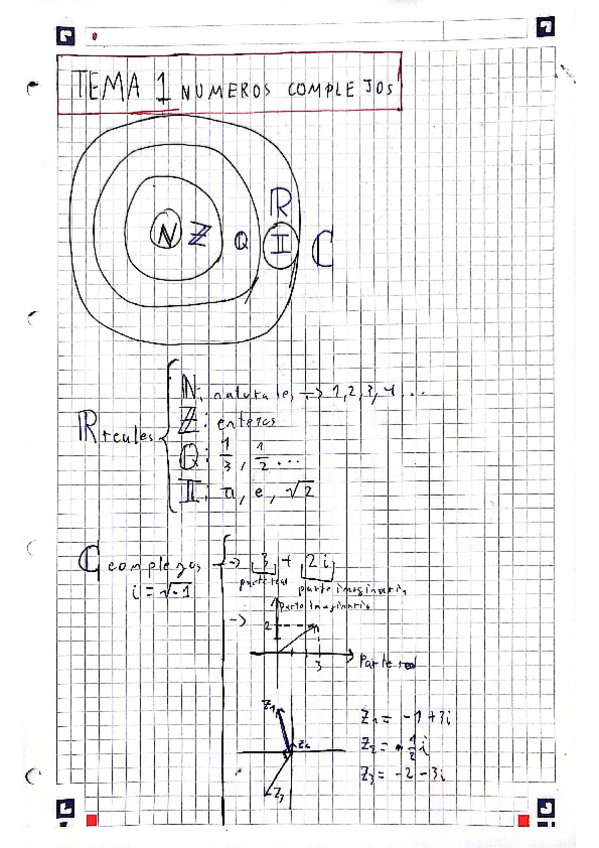 TEMA 1 NUMEROS COMPLEJOS
ℝ
ℕ ℤ ℚ 𝕀 ℂ
ℕ: naturales → 1, 2, 3, 4 ...
ℤ: enteros
ℝ reales
ℚ: 1/3, 1/2 ...
𝕀: π, e, √2
ℂ complejos → 3 + 2i
parte real parte imaginaria
i = √-1
parte imaginaria
→ 2
3 Parte real
Z₁ Z₁ = -1 + 3i
Z₂ Z₂ = 1/2 i
Z₃ Z₃ = -2 - 3i